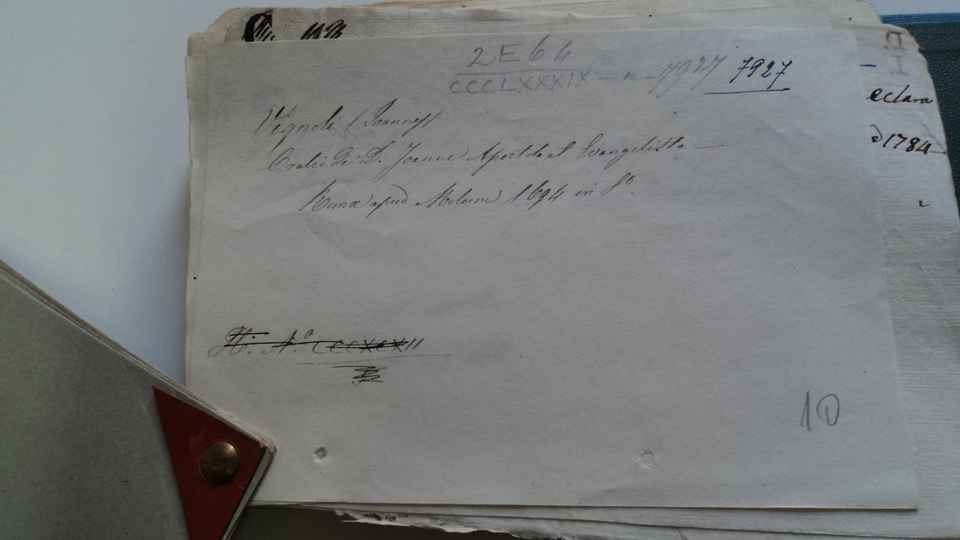 2E64
CCCLXXXIX - n - 7927 7927
Vignole (Joannes)
Oratio de D. Joanne Apostolo et Evangelista
Romæ apud Molum 1694 in 8º.
H. Nº CCCXCXII
10
eclara
1784